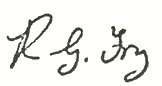 R G. Fry